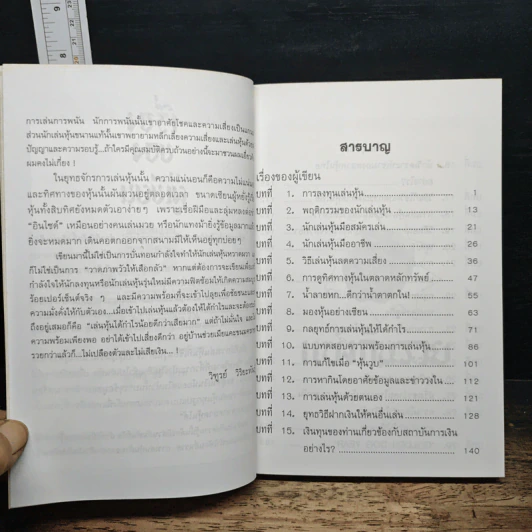 การเล่นการพนัน นักการพนันนั้นเขาอาศัยโชคและความเสี่ยงเป็น
ส่วนนักเล่นหุ้นชนานแท้นั้นเขาพยายามหลีกเลี่ยงความเสี่ยงและเล่นหุ้นด้วย
ปัญญาและความรอบรู้...ถ้าใครมีคุณสมบัติครบถ้วนอย่างนี้จะมาชวนผมเลี้ยง
ผมคงไม่เกี่ยง !
ในยุทธจักรการเล่นหุ้นนั้น "ความแน่นอนก็คือความไม่
และทิศทางของหุ้นนั้นผันผวนอยู่ตลอดเวลา ขนาดเซียนผู้หยั่งรู้
หุ้นทั้งสิบทิศยังหมดตัวเอาง่ายๆ เพราะเชื่อฝีมือและลุ่มหลง
"อินไซด์" เหมือนอย่างคนเล่นมวย หรือนักแทงม้ายิ่งรู้ข้อมูลมาก
ยิ่งจะหมดมาก เดินคอตกออกจากสนามมีให้เห็นอยู่ทุกบ่อยๆ
เขียนมานี้ไม่ใช่เป็นการบั่นทอนกำลังใจทำให้นักเล่นหุ้น
ก็ไม่ใช่เป็นการ "วาดภาพวัวให้เสือกลัว" หากแต่ต้องการจะเขียน
กำลังใจให้นักลงทุนหรือนักเล่นหุ้นรุ่นใหม่มีความฟิตพร้อมให้เกิดความ
ร้อยเปอร์เซ็นต์จริงๆ และมีความพร้อมที่จะเข้าไปลุยเพื่อ
ความมั่งคั่งให้กับตัวเอง...เมื่อเข้าไปเล่นหุ้นแล้วต้องให้ได้กำไรและจะต้อง
ถึงอยู่เสมอก็คือ "เล่นหุ้นได้กำไรน้อยดีกว่าเสียมาก" แต่ถ้าไม่มั่นใจ
ความพร้อมเพียงพอ อย่าได้เข้าไปเสี่ยงดีกว่า อยู่บ้านช่วยเมียเตะ
รวยกว่าแล้วก็...ไม่เปลืองตัวและไม่เสียเงิน... !
วิฑูรย์
สารบาญ
เรื่องของผู้เขียน
บทที่ 1. การลงทุนเล่นหุ้น 1
บทที่ 2. พฤติกรรมของนักเล่นหุ้น 13
บทที่ 3. นักเล่นหุ้นมือสมัครเล่น 21
บทที่ 4. นักเล่นหุ้นมืออาชีพ 26
บทที่ 5. วิธีเล่นหุ้นลดความเสี่ยง 36
บทที่ 6. การดูทิศทางหุ้นในตลาดหลักทรัพย์ 47
บทที่ 7. น้ำลายหก...ดีกว่าน้ำตาตกใน! 55
บทที่ 8. มองหุ้นอย่างเซียน 63
บทที่ 9. กลยุทธ์การเล่นหุ้นให้ได้กำไร 71
บทที่ 10. แบบทดสอบความพร้อมการเล่นหุ้น 86
บทที่ 11. การแก้ไขเมื่อ "หุ้นวูบ" 101
บทที่ 12. การหากินโดยอาศัยข้อมูลและข่าววงใน 112
บทที่ 13. การเล่นหุ้นด้วยตนเอง 121
บทที่ 14. ยุทธวิธีฝากเงินให้คนอื่นเล่น 128
บทที่ 15. เงินทุนของท่านเกี่ยวข้องกับสถาบันการเงิน
อย่างไร? 140